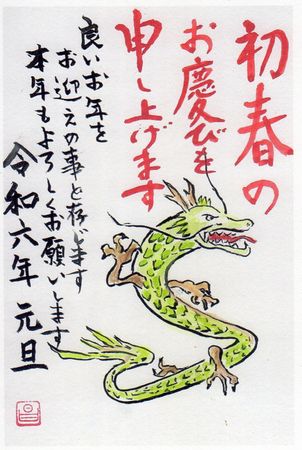 初春の
お慶びを
申し上げます
良いお年を
お迎えの事と存じます
本年もよろしくお願いします
令和六年 元旦